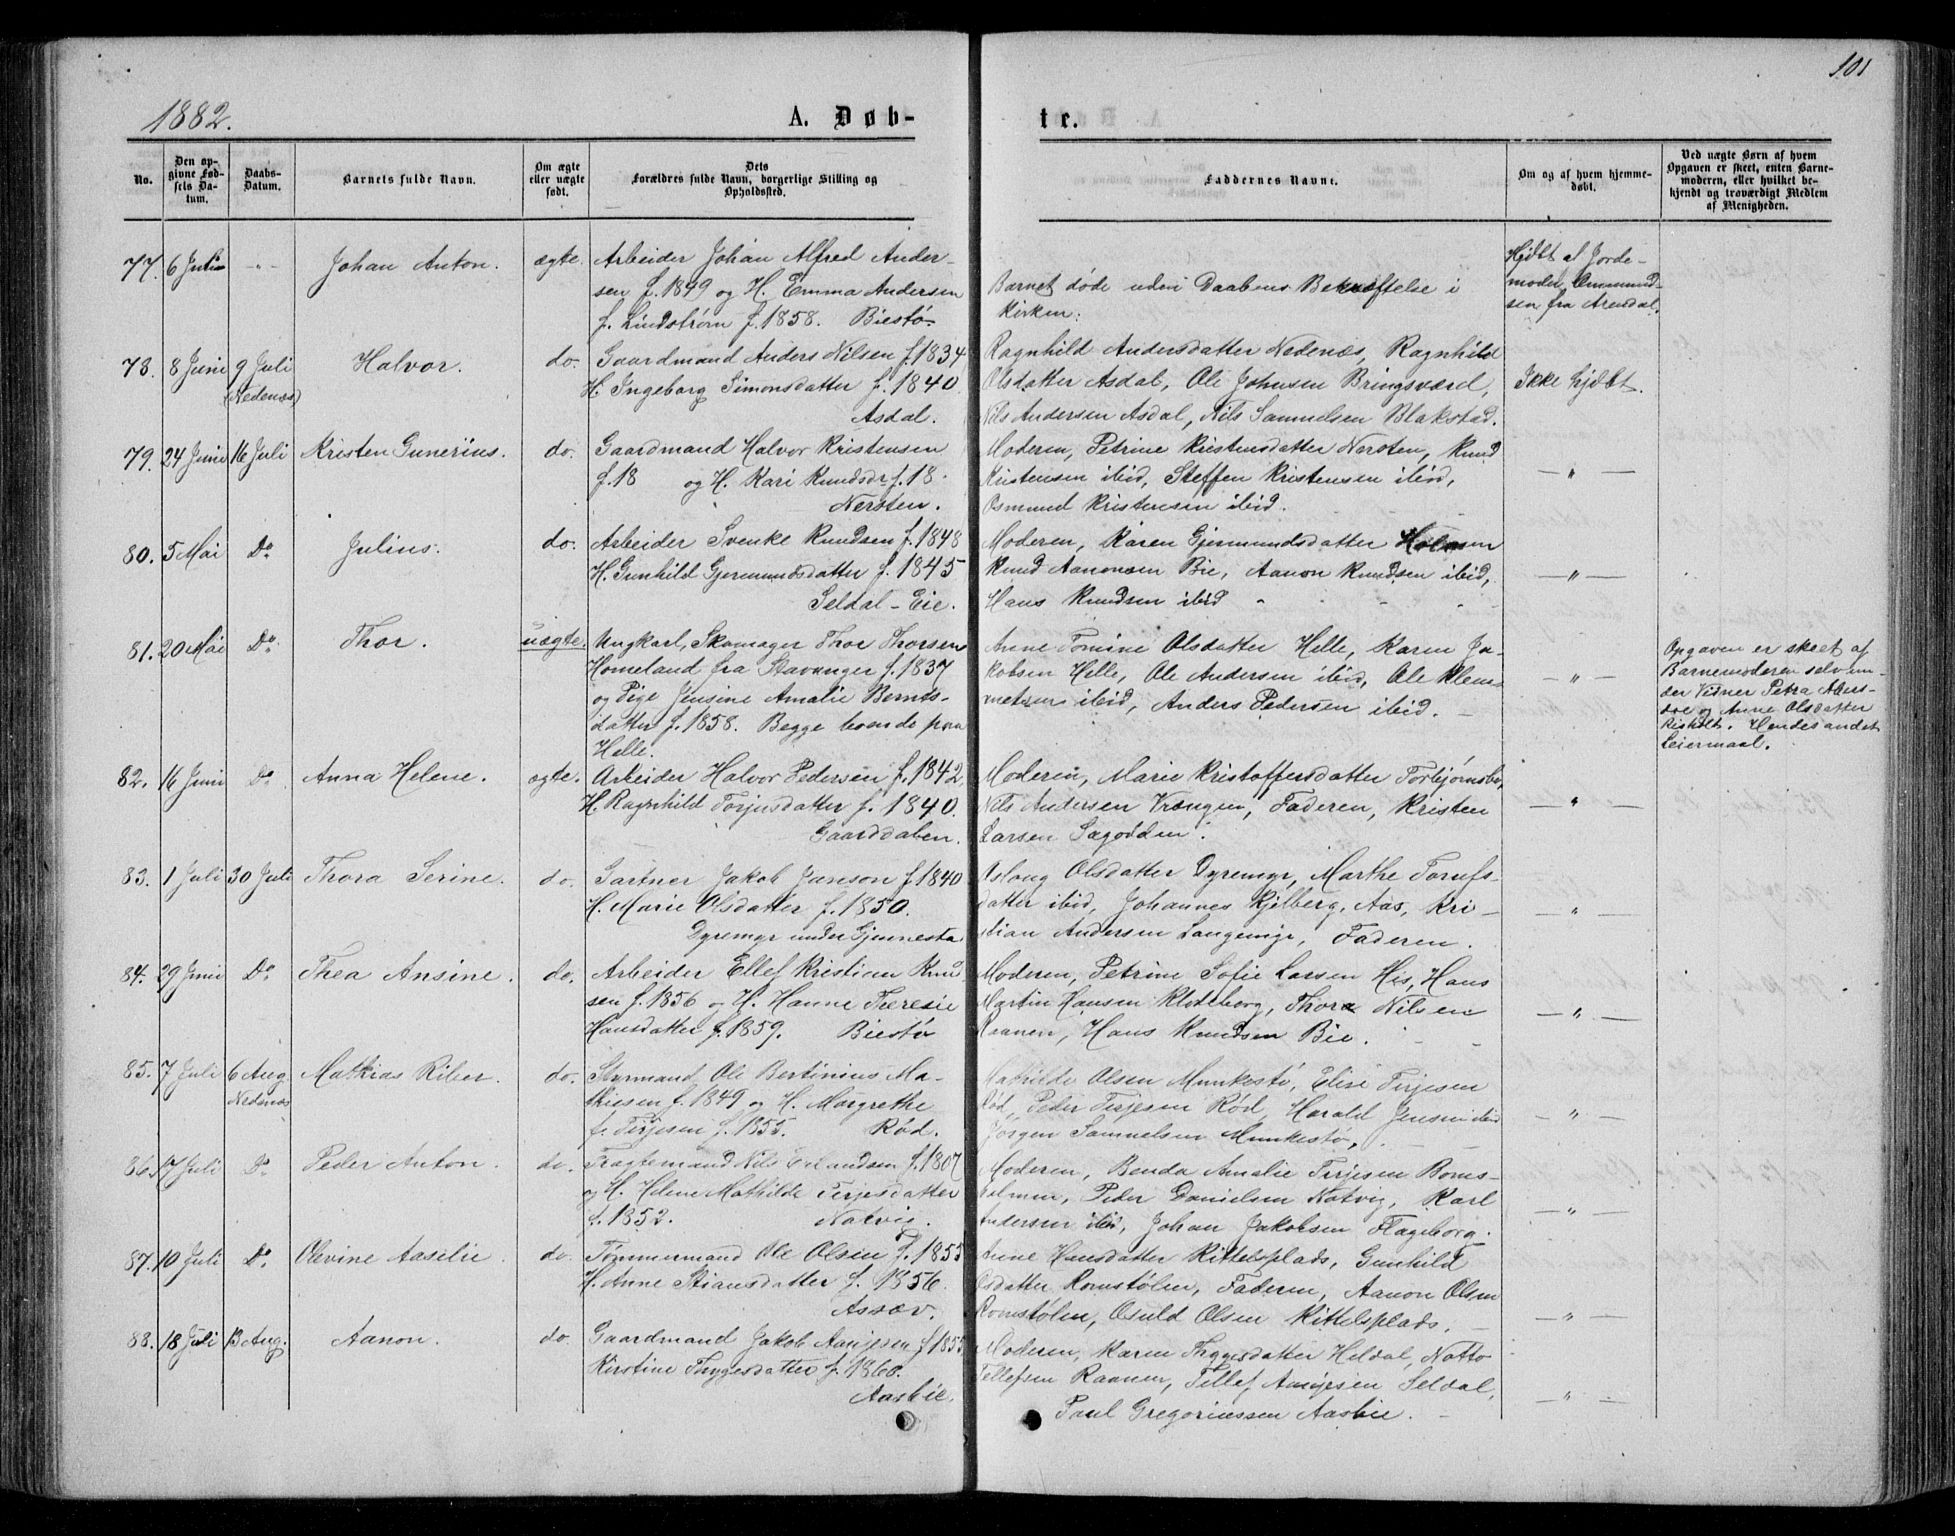 101
1882.
A. Døb-
te.
No.
Den opgivne Fødsels Datum.
Daabs-Datum.
Barnets fulde Navn.
Om ægte eller uægte født.
Dets Forældres fulde Navn, borgerlige Stilling og Opholdssted.
Faddernes Navne.
Om og af hvem hjemmedøbt.
Ved uægte Børn af hvem Opgaven er skeet, enten Barnemoderen, eller hvilket bekjendt og troværdigt Medlem af Menigheden.
77. 6 Juli -"- Johan Anton. ægte. Arbeider Johan Alfred Ander-
sen f. 1849 og H. Emma Andersen
f. Lindstrøm f. 1858. Biestø.
Barnet døde uden Daabens Bekræftelse i
Kirken:
Hjdbt af Jorde-
moder Ommund-
sen fra Arendal.
78. 8 Juni 9 Juli (Nedenæs) Halvor. do. Gaardmand Anders Nilsen f. 1834
H. Ingeborg Simonsdatter f. 1840.
Asdal.
Ragnhild Andersdatter Nedenæs, Ragnhild
Olsdatter Asdal, Ole Johnsen Bringsværd,
Nils Andersen Asdal, Nils Samuelsen Blakstad.
Ikke hjdbt.
79. 24 Juni 16 Juli Kristen Gunerius. do. Gaardmand Halvor Kristensen
f. 18 og H. Kari Knudsdr f. 18 .
Nersten.
Moderen, Petrine Kristensdatter Nersten, Knud
Kristensen ibid, Steffen Kristensen ibid,
Osmund Kristensen ibid.
— " —
80. 5 Mai Do Julius. do. Arbeider Svenke Knudsen f. 1848
H. Gunhild Gjermundsdatter f. 1845
Seldal-Eie.
Moderen, Karen Gjermundsdatter
Knud Aanonsen Bie, Aanon Knudsen ibid,
Hans Knudsen ibid
— " —
81. 20 Mai Do Thor. uægte. Ungkarl, Skomager Thor Thorsen
Homeland fra Stavanger f. 1837
og Pige Jensine Amalie Bernts-
datter f. 1858. Begge boende paa
Helle.
Anne Tomine Olsdatter Helle, Karen Ja-
kobsen Helle, Ole Andersen ibid, Ole Klem-
metsen ibid, Anders Pedersen ibid.
— " —
Opgaven er skeet af
Barnemoderen selv un-
der Vidner Petra
og Anne Olsdatter
Risholt. Hendes andet
Leiermaal.
82. 16 Juni Do Anna Helene. ægte. Arbeider Halvor Pedersen f. 1842,
H. Ragnhild Torjusdatter f. 1840.
Gaarddalen.
Moderen, Marie Kristoffersdatter Torbjørnsbo,
Nils Andersen Vrængen, Faderen, Kristen
Larsen Sagodden.
— " —
83. 1 Juli 30 Juli Thora Serine. do. Gartner Jakob Janson f. 1840
H. Marie Olsdatter f. 1850.
Dyremyr under Gjennestad
Aslaug Olsdatter Dyremyr, Marthe Torufs-
datter ibid, Johannes Kjelberg, Aas, Kri-
stian Andersen Langemyr, Faderen.
— " —
84. 29 Juni Do Thea Ansine. do. Arbeider Ellef Kristian Knud
sen f. 1856 og H. Hanne Teresie
Hansdatter f. 1859. Biestø
Moderen, Petrine Sofie Larsen His, Hans
Martin Hansen Klodeborg, Thora Nilsen
Raanen, Hans Knudsen Bie.
— " —
85. 7 Juli 6 Aug Nedenæs Mathias Riber. do. Styrmand Ole Bertinius Ma-
thiesen f. 1849 og H. Margrethe
f. Terjesen f. 1855. Rød.
Mathilde Olsen Munkestø, Elise Terjesen
Rød, Peder Terjesen Rød, Harald Jensen ibid
Jørgen Samuelsen Munkestø,
— " —
86. 17 Juli Do Peder Anton. do. Fragtemand Nils Erlandsen f. 1807
og H. Helene Mathilde Terjesdatter
f. 1852. Natvig.
Moderen, Benda Amalie Terjesen Boms-
holmen, Peder Danielsen Natvig, Karl
Andersen ibid, Johan Jakobsen Flageborg.
— " —
87. 10 Juli Do Olevine Aaselie do. Tømmermand Ole Olsen f. 1855
H. Anne Stiansdatter f. 1856.
Assæv.
Anne Hansdatter Kittelsplads, Gunhild
Olsdatter Romstølen, Faderen, Aanon Olsen
Romstølen, Osuld Olsen Kittelsplads.
— " —
88. 18 Juli 13 Aug. Aanon. do. Gaardmand Jakob f. 1855
Kirstine Thygesdatter f. 1860.
Aasbie.
Moderen, Karen Thygesdatter Heldal,
Tellefsen Raanen, Tellef Seldal,
Paul Gregoriussen Aasbie.
— " —